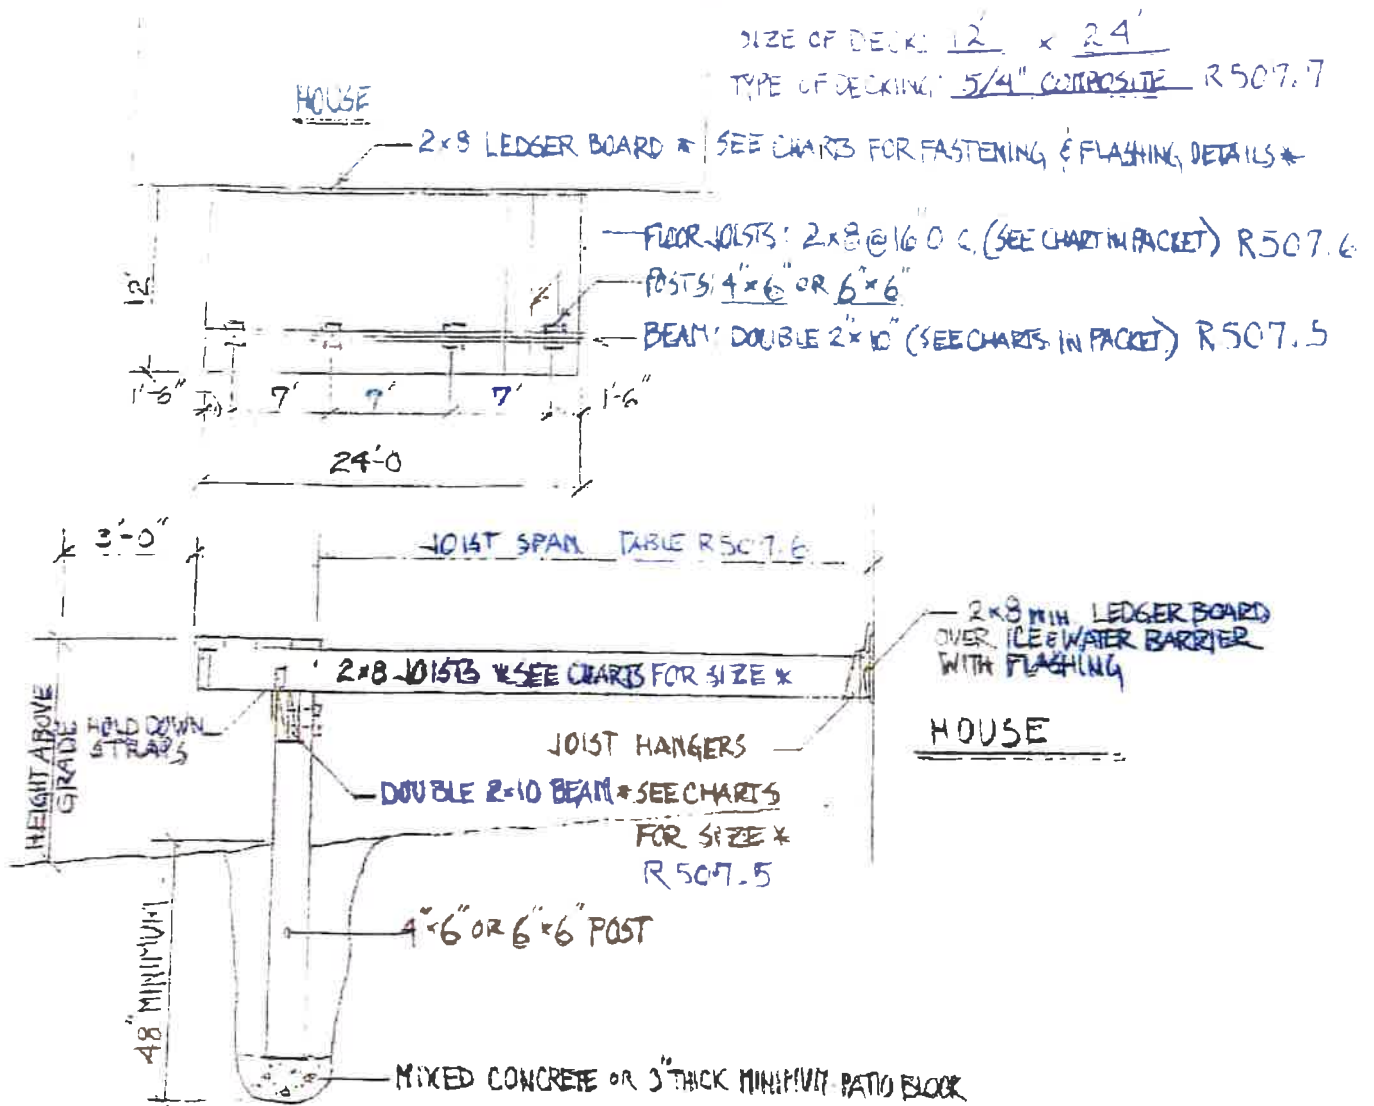 SIZE OF DECK: 12' x 24'
TYPE OF DECKING: 5/4" COMPOSITE R507.7
HOUSE
2x8 LEDGER BOARD * SEE CHARTS FOR FASTENING & FLASHING DETAILS *
FLOOR JOISTS: 2x8 @ 16" O.C. (SEE CHART IN PACKET) R507.6
POSTS: 4"x6" OR 6"x6"
BEAM: DOUBLE 2"x10" (SEE CHARTS IN PACKET) R507.5
12'
1'-6" 7' 7' 7' 1'-6"
24'-0
3'-0" JOIST SPAN TABLE R507.6
2x8 MIN. LEDGER BOARD
OVER ICE & WATER BARRIER
WITH FLASHING
2x8 JOISTS *SEE CHARTS FOR SIZE *
HOLD DOWN
STRAPS
HEIGHT ABOVE
GRADE
JOIST HANGERS
HOUSE
DOUBLE 2x10 BEAM * SEE CHARTS
FOR SIZE *
R507.5
4"x6" OR 6"x6" POST
48" MINIMUM
MIXED CONCRETE OR 3" THICK MINIMUM PATIO BLOCK